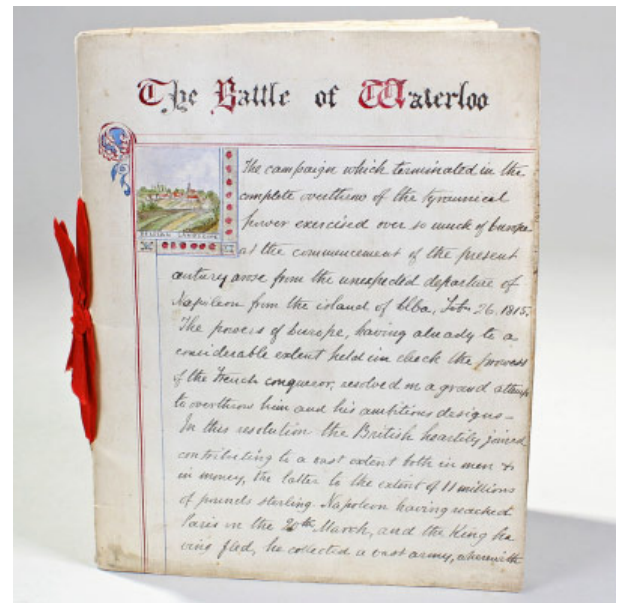 The Battle of Waterloo
The campaign which terminated in the
complete overthrow of the tyrannical
power exercised over so much of Europe
at the commencement of the present
century arose from the unexpected departure of
Napoleon from the island of Elba, Feb. 26, 1815.
The powers of Europe, having already to a
considerable extent held in check the prowess
of the French conqueror, resolved on a grand attempt
to overthrow him and his ambitious designs –
In this resolution the British heartily joined
contributing to a vast extent both in men &
in money, the latter to the extent of 11 millions
of pounds sterling. Napoleon having reached
Paris on the 20th March, and the King ha
ving fled, he collected a vast army, wherewith